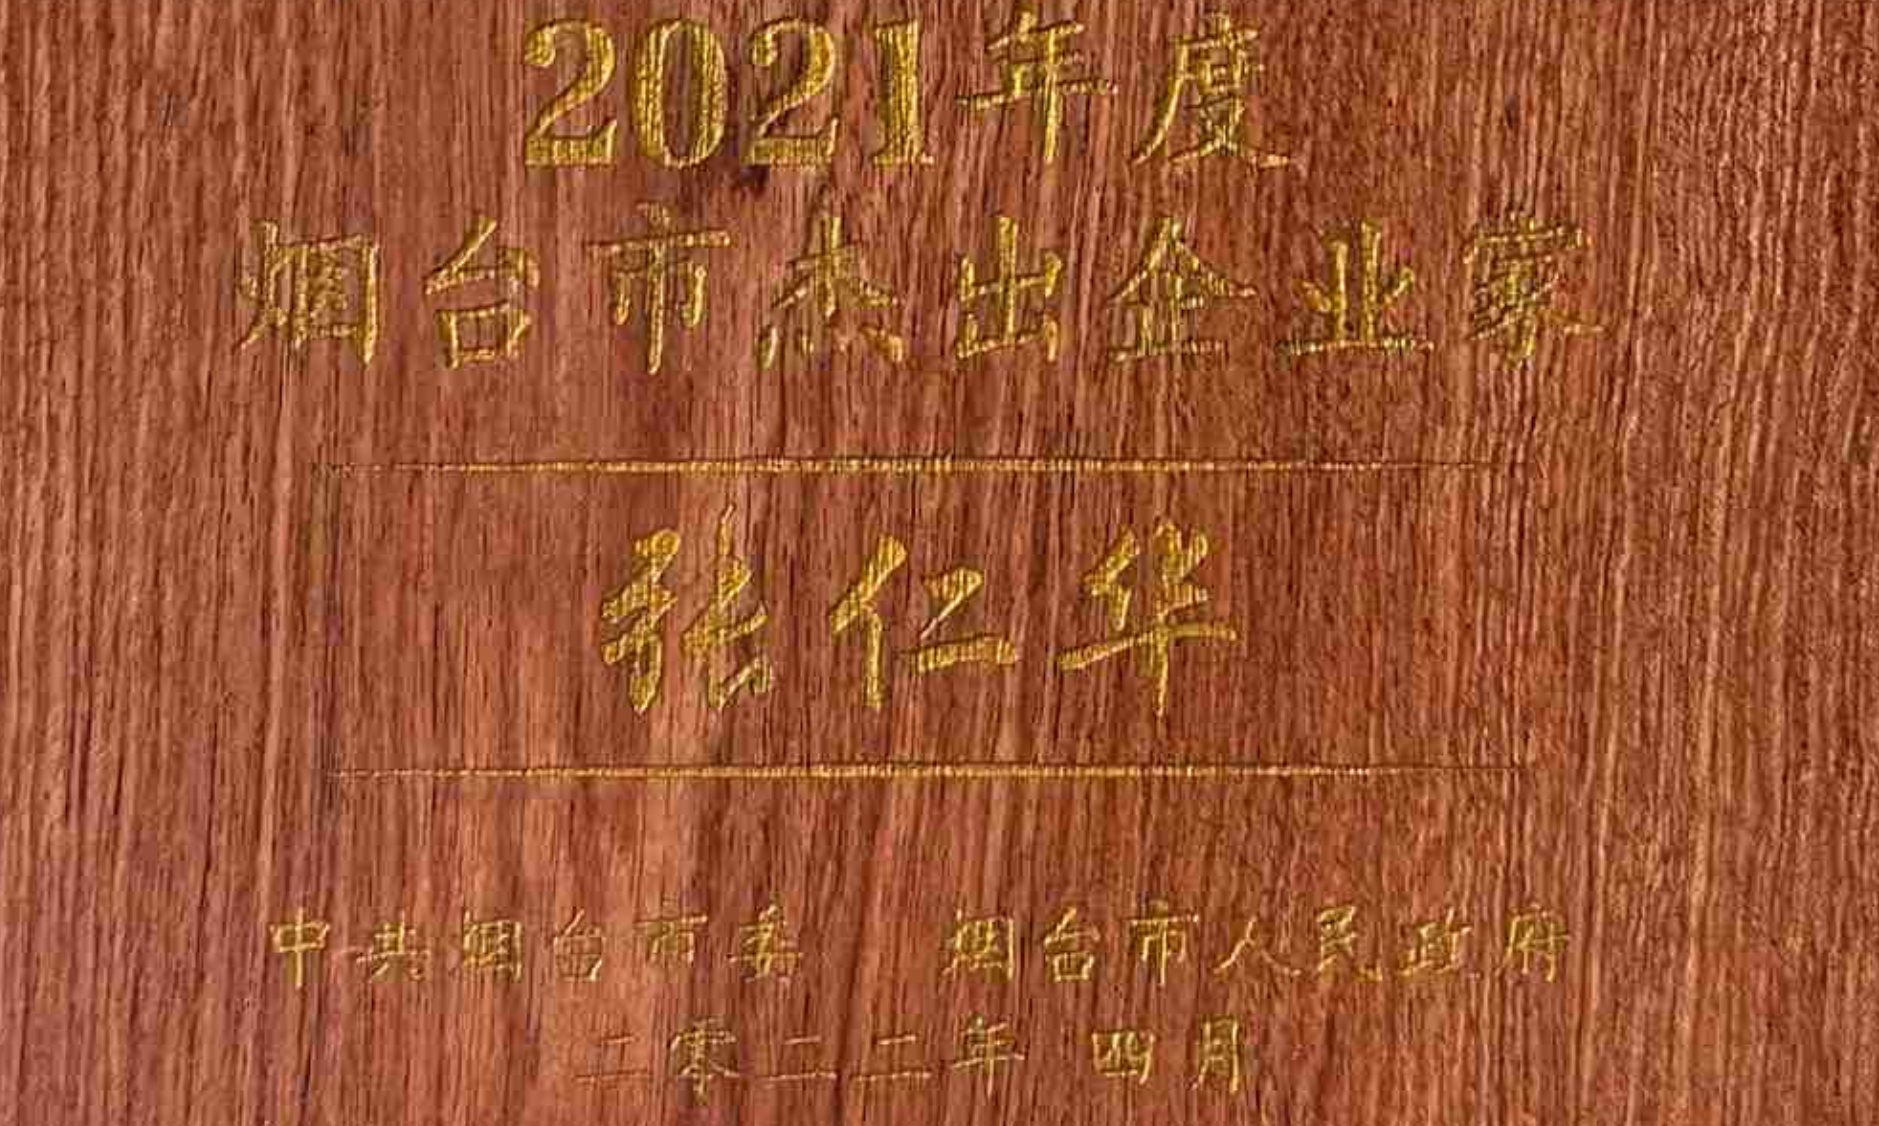 2021年度
烟台市杰出企业家
张仁华
中共烟台市委 烟台市人民政府
二零二二年 四月